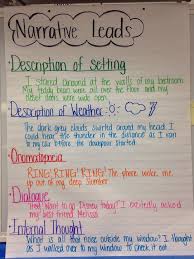 Narrative Leads
• Description of Setting
I stared around at the walls of my bedroom.
My teddy bears were all over the floor and my
closet doors were wide open.
• Description of Weather
The dark grey clouds swirled around my head. I
could hear the thunder in the distance as I ran
to my car before the downpour started.
• Onomatopoeia
RING! RING! RING! The phone woke me
up out of my deep slumber.
• Dialogue
"Want to go to Disney today?" I excitedly asked
my best friend Melissa.
• Internal Thought
What is all that noise outside my window? I thought
as I walked over to my window to check it out.